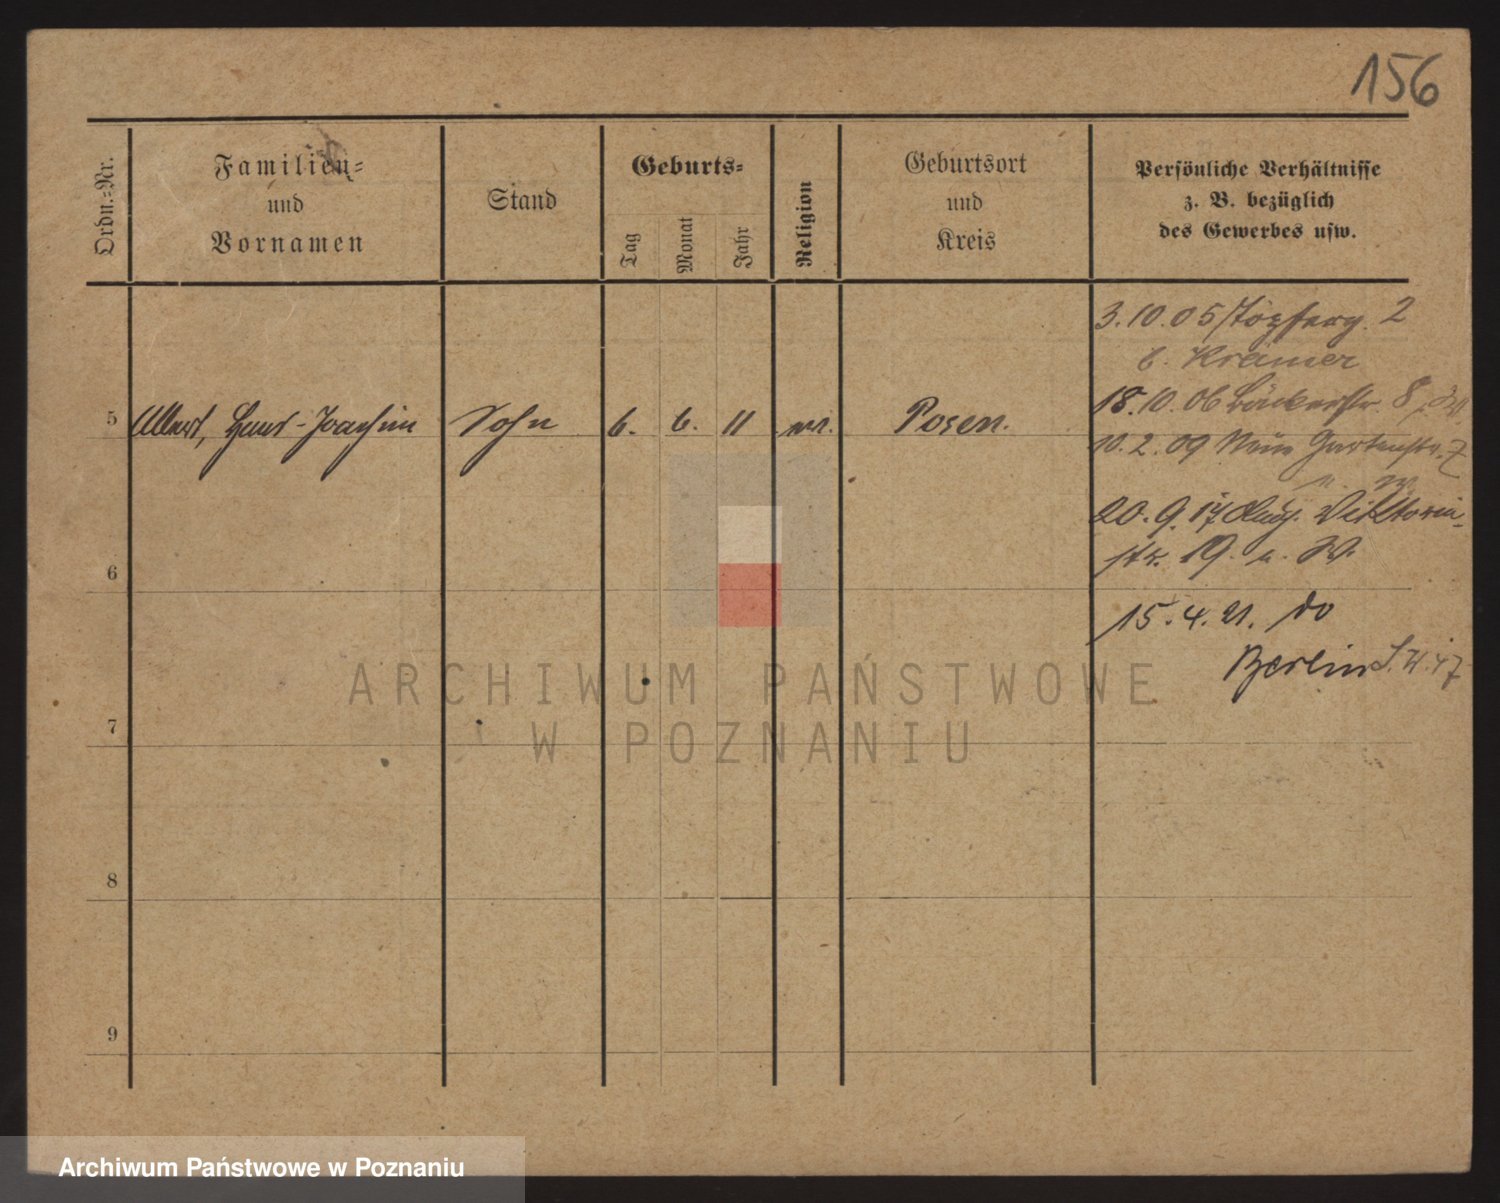 156
Ordn.=Nr.
Familien=
und
Vornamen
Stand
Geburts=
Tag
Monat
Jahr
Religion
Geburtsort
und
Kreis
Persönliche Verhältnisse
z. B. bezüglich
des Gewerbes usw.
3.10.05 Töpferg. 2
b. Krämer
18.10.06 Bäckerstr. 8
5 Hans-Joachim Sohn 6. 6. 11 Posen.
10.2.09 Neue Gartenstr. 7
20.9.17 Aug. Viktoria-
str. 19.
6
15.4.21. do
Berlin S.W. 47
7
8
9
ARCHIWUM PAŃSTWOWE
W POZNANIU
Archiwum Państwowe w Poznaniu